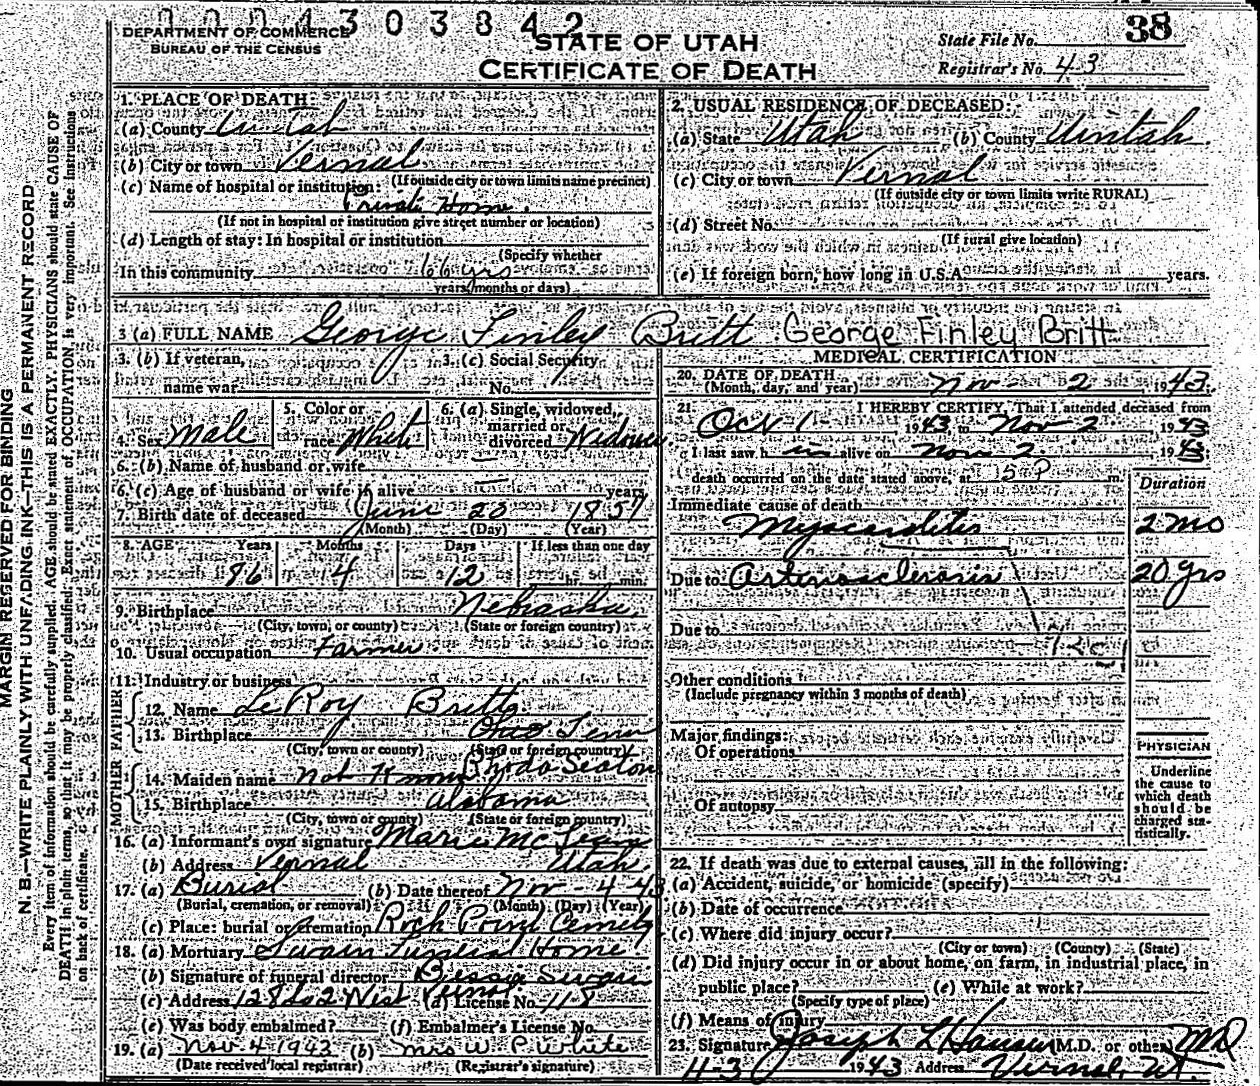 0004303842
DEPARTMENT OF COMMERCE
BUREAU OF THE CENSUS
STATE OF UTAH
CERTIFICATE OF DEATH
State File No. 38
Registrar's No. 43
MARGIN RESERVED FOR BINDING
N. B.—WRITE PLAINLY WITH UNFADING INK—THIS IS A PERMANENT RECORD
Every item of information should be carefully supplied. AGE should be stated EXACTLY. PHYSICIANS should state CAUSE OF
DEATH in plain terms, so that it may be properly classified. Exact statement of OCCUPATION is very important. See Instructions
on back of certificate.
1. PLACE OF DEATH:
(a) County Uintah
(b) City or town Vernal
(If outside city or town limits name precinct)
(c) Name of hospital or institution:
Private Home.
(If not in hospital or institution give street number or location)
(d) Length of stay: In hospital or institution
(Specify whether
In this community 66 yrs
years, months or days)
2. USUAL RESIDENCE OF DECEASED:
(a) State Utah (b) County Uintah
(c) City or town Vernal
(If outside city or town limits write RURAL)
(d) Street No.
(If rural give location)
(e) If foreign born, how long in U.S.A. years.
3 (a) FULL NAME George Finley Britt George Finley Britt
3. (b) If veteran,
name war
3. (c) Social Security
No.
4. Sex Male
5. Color or
race White
6. (a) Single, widowed,
married or
divorced
6. (b) Name of husband or wife —
6. (c) Age of husband or wife if alive — years
7. Birth date of deceased June 20 1857
(Month) (Day) (Year)
8. AGE Years Months Days If less than one day
86 4 12 hr. min.
9. Birthplace Nebraska
(City, town, or county) (State or foreign country)
10. Usual occupation Farmer
11. Industry or business
FATHER
12. Name LeRoy Britt
13. Birthplace Tenn
(City, town or county) (State or foreign country)
MOTHER
14. Maiden name Not Known Rhoda Seaton
15. Birthplace Alabama
(City, town or county) (State or foreign country)
16. (a) Informant's own signature Marie McLean
(b) Address Vernal Utah
17. (a) Burial (b) Date thereof Nov - 4 - 43
(Burial, cremation, or removal) (Month) (Day) (Year)
(c) Place: burial or cremation Rock Point
18. (a) Mortuary Swain Funeral Home
(b) Signature of funeral director Bessie Swain
(c) Address 128 So 2 West Vernal (d) License No. 118
(e) Was body embalmed? (f) Embalmer's License No.
19. (a) Nov 4 1943 (b) Mrs W. P White
(Date received local registrar) (Registrar's signature)
MEDICAL CERTIFICATION
20. DATE OF DEATH
(Month, day, and year) Nov - 2 1943.
21. I HEREBY CERTIFY, That I attended deceased from
Oct 1 1943 to Nov 2 1943
I last saw h im alive on Nov 2 1943;
death occurred on the date stated above, at 5 P m.
Duration
Immediate cause of death
Myocarditis 2 mo
Due to Arteriosclerosis 20 yrs
Due to
Other conditions
(Include pregnancy within 3 months of death)
Major findings:
Of operations
Of autopsy
PHYSICIAN
Underline
the cause to
which death
should be
charged sta-
tistically.
22. If death was due to external causes, fill in the following:
(a) Accident, suicide, or homicide (specify)
(b) Date of occurrence
(c) Where did injury occur?
(City or town) (County) (State)
(d) Did injury occur in or about home, on farm, in industrial place, in
public place? (e) While at work?
(Specify type of place)
(f) Means of injury
23. Signature Joseph L Hansen (M.D. or other) MD
11-3 1943 Address Vernal, Ut.